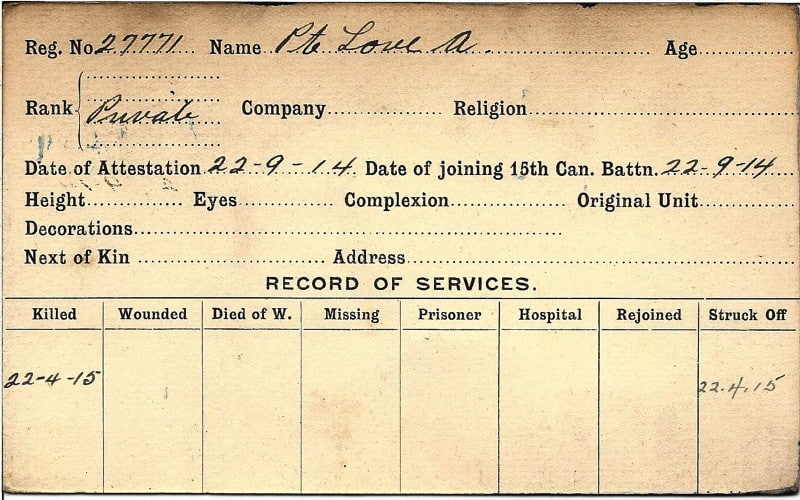 Reg. No. 27771 Name Pte Love A. Age
Rank Private Company Religion
Date of Attestation 22-9-14. Date of joining 15th Can. Battn. 22-9-14
Height Eyes Complexion Original Unit
Decorations
Next of Kin Address
RECORD OF SERVICES.
Killed Wounded Died of W. Missing Prisoner Hospital Rejoined Struck Off
22-4-15 22.4.15